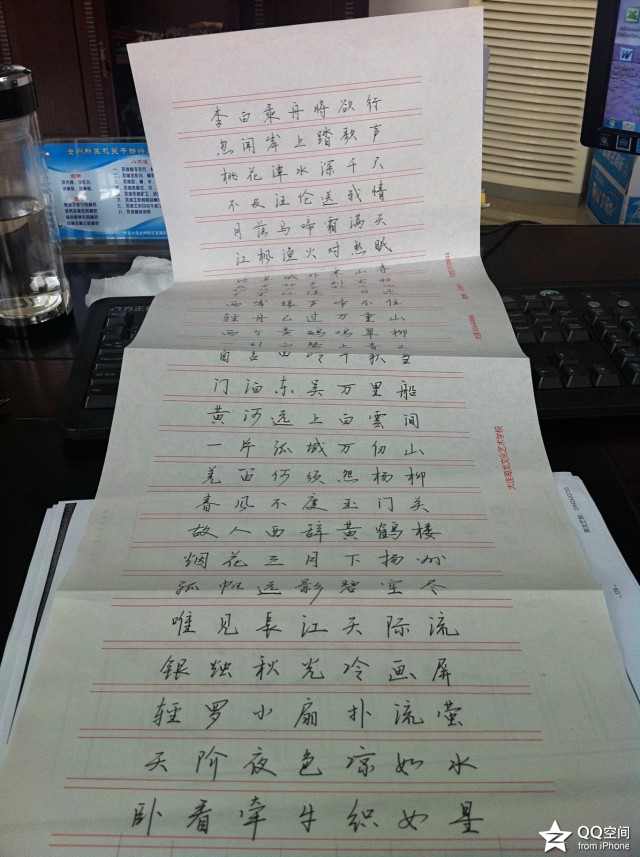 李白乘舟将欲行
忽闻岸上踏歌声
桃花潭水深千尺
不及汪伦送我情
月落乌啼霜满天
江枫渔火对愁眠
城外寒山寺
两岸猿声啼不住
轻舟已过万重山
两个黄鹂鸣翠柳
窗含西岭千秋雪
门泊东吴万里船
黄河远上白雲间
一片孤城万仞山
羌笛何须怨杨柳
春风不度玉门关
故人西辞黄鹤楼
烟花三月下扬州
孤帆远影碧空尽
唯见長江天际流
银烛秋光冷画屏
轻罗小扇扑流萤
天阶夜色凉如水
卧看牵牛织女星
QQ空间
from iPhone